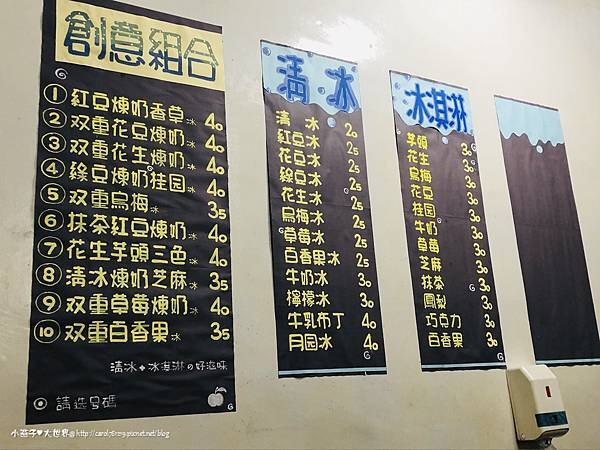 創意組合
① 紅豆煉奶香草冰 40
② 双重花豆煉奶冰 40
③ 双重花生煉奶冰 40
④ 綠豆煉奶桂园冰 40
⑤ 双重烏梅冰 35
⑥ 抹茶紅豆煉奶冰 40
⑦ 花生芋頭三色冰 40
⑧ 清冰煉奶芝麻冰 35
⑨ 双重草莓煉奶冰 40
⑩ 双重百香果冰 35
清冰+冰淇淋の好滋味
◎ 請选号碼
清冰
清 冰 20
紅豆冰 25
花豆冰 25
綠豆冰 25
花生冰 25
烏梅冰 25
草莓冰 25
百香果冰 25
牛奶冰 30
檸檬冰 30
牛乳布丁 40
月园冰 40
冰淇淋
芋頭 30
花生 30
烏梅 30
花豆 30
桂园 30
牛奶 30
草莓 30
芝麻 30
抹茶 30
鳳梨 30
巧克力 30
百香果 30
小燕子♥大世界@ http://carol76729.pixnet.net/blog